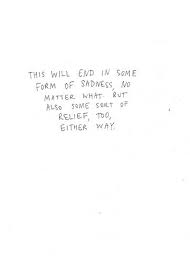 THIS WILL END IN SOME
FORM OF SADNESS, NO
MATTER WHAT. BUT
ALSO SOME SORT OF
RELIEF, TOO,
EITHER WAY.